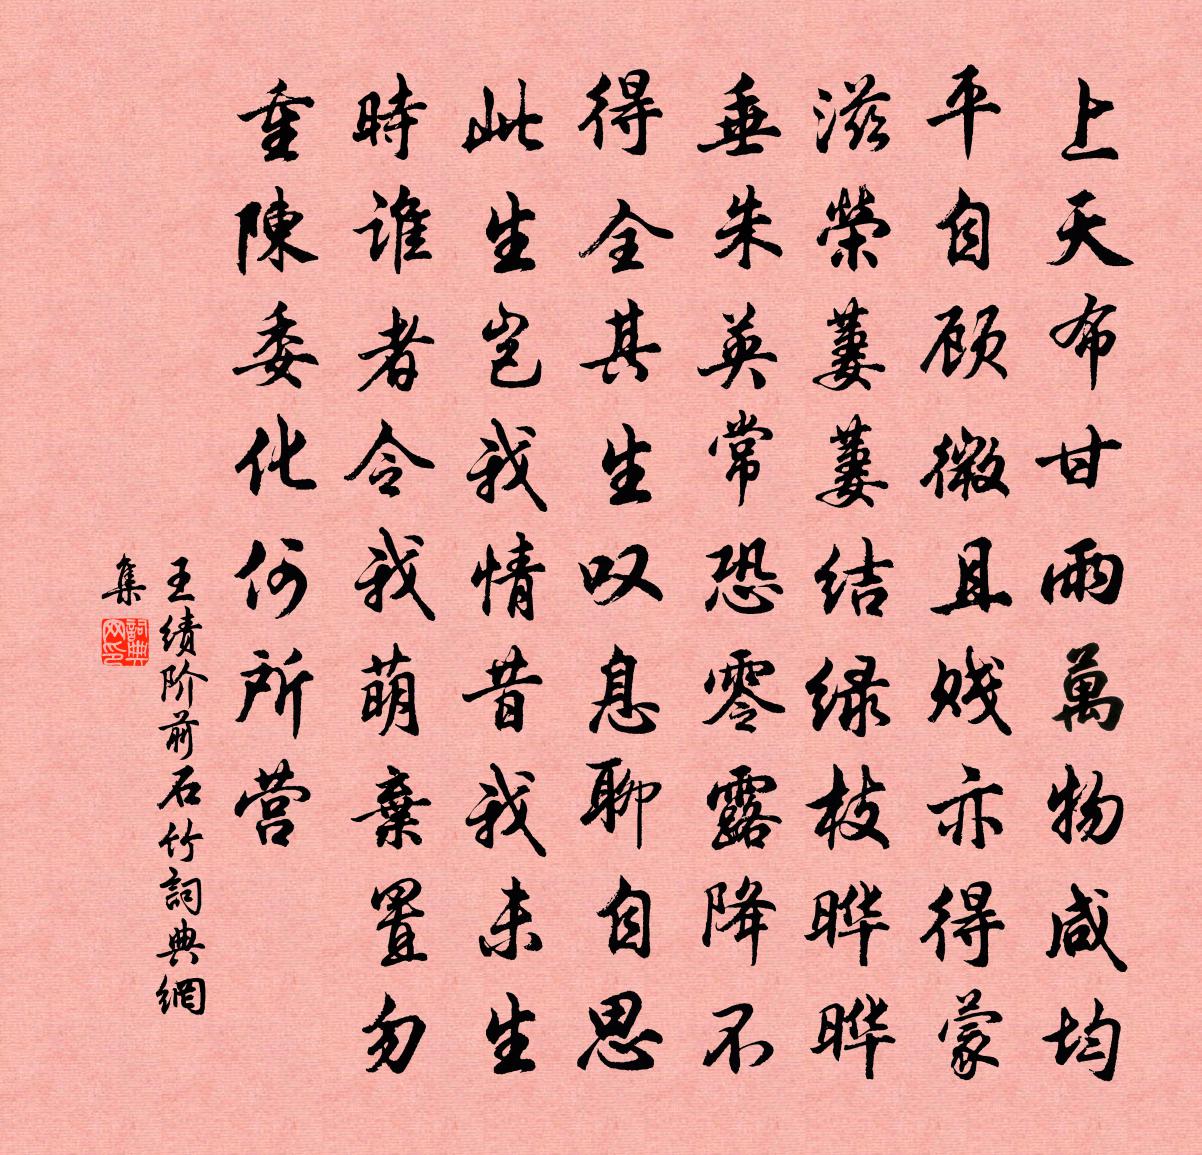 上天布甘雨萬物咸均
平自顾微且贱亦得蒙
滋榮萋萋结绿枝晔晔
垂朱英常恐零露降不
得全其生叹息聊自思
此生岂我情昔我未生
時谁者令我萌棄置勿
重陳委化何所营
王绩阶前石竹詞典網
集
詞典网印